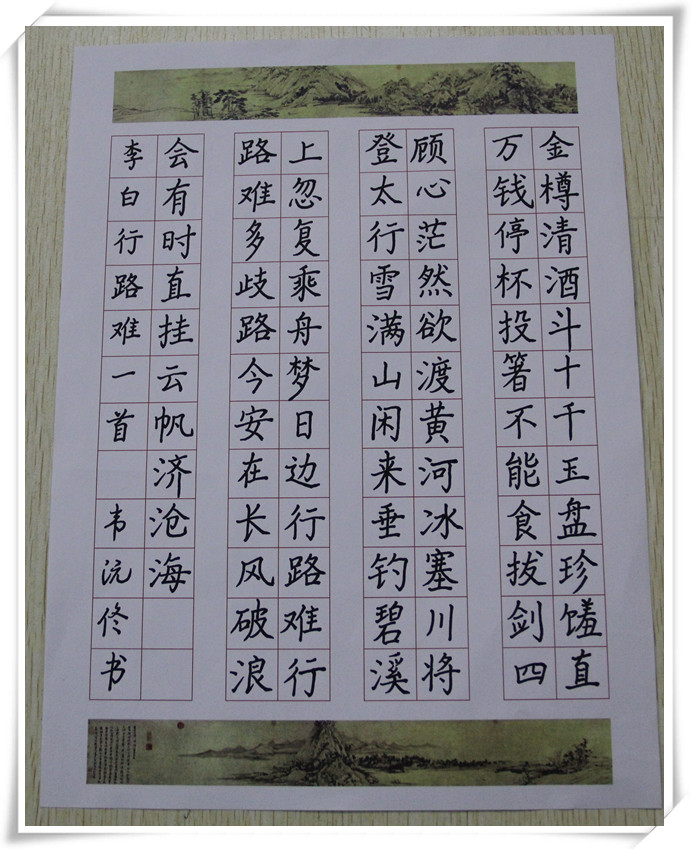 金樽清酒斗十千玉盘珍馐直
万钱停杯投箸不能食拔剑四
顾心茫然欲渡黄河冰塞川将
登太行雪满山闲来垂钓碧溪
上忽复乘舟梦日边行路难行
路难多歧路今安在长风破浪
会有时直挂云帆济沧海
李白行路难一首 韦沅佟书